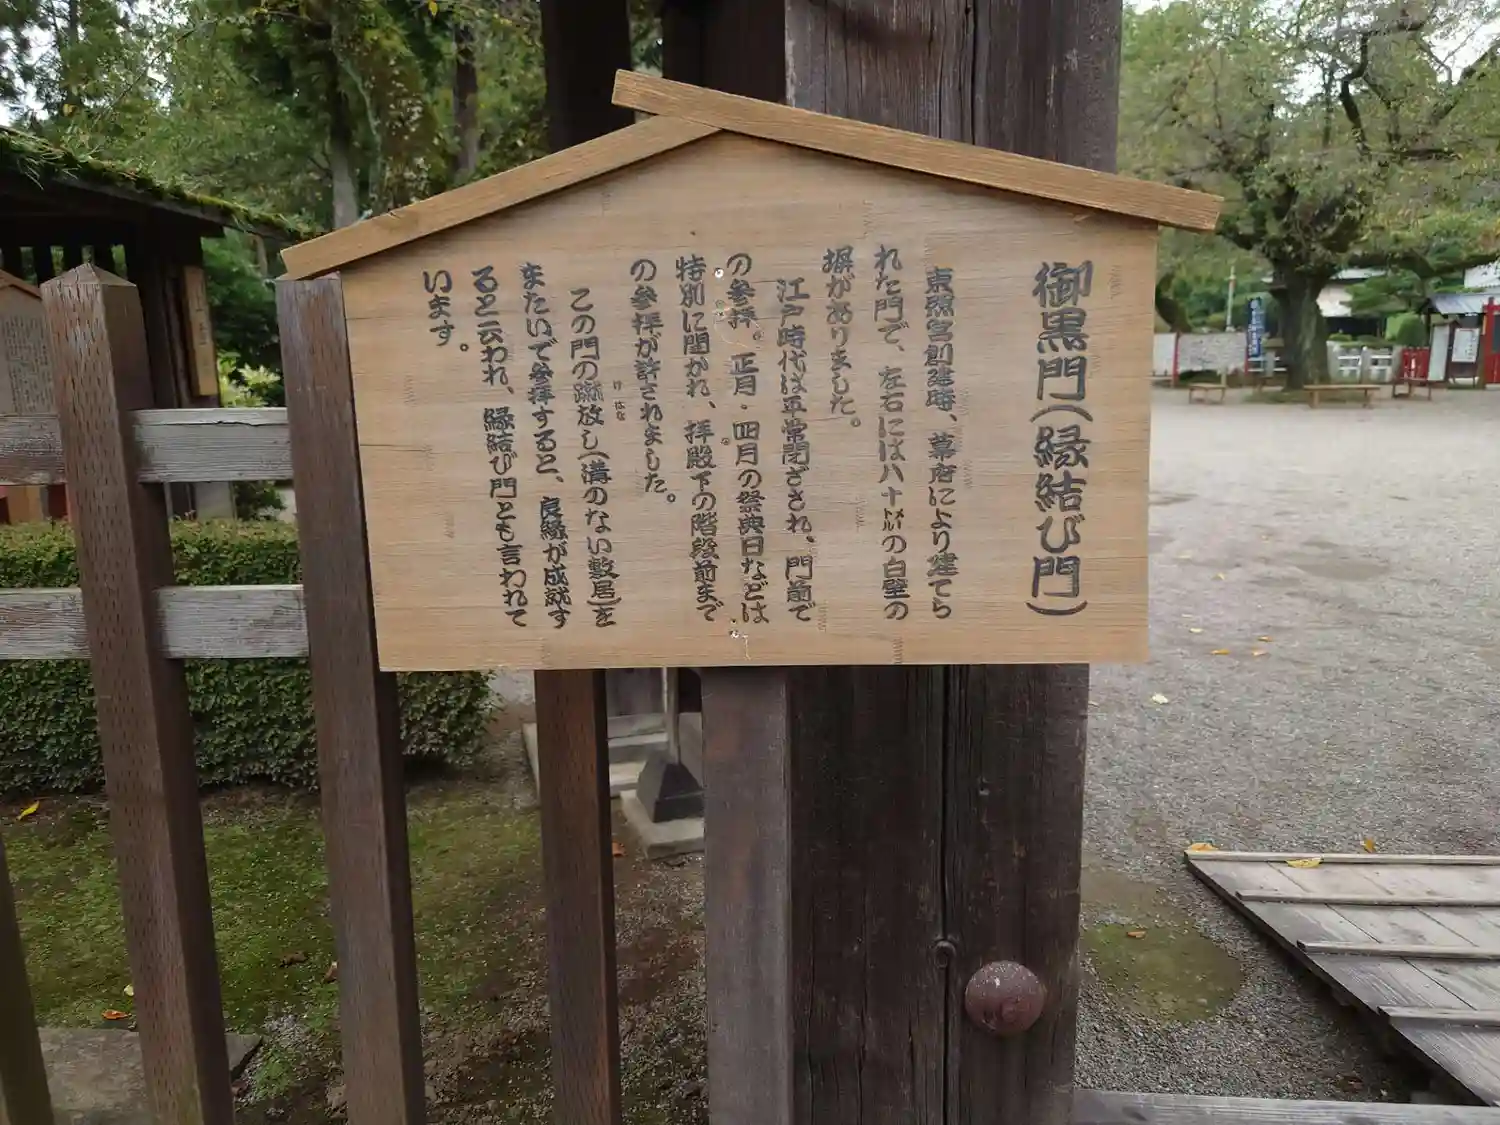 御黒門(縁結び門)
東照宮創建時、幕府により建てら
れた門で、左右には八十メートルの白壁の
塀がありました。
江戸時代は平常閉ざされ、門前で
の参拝。正月・四月の祭典日などは
特別に開かれ、拝殿下の階段前まで
の参拝が許されました。
この門の蹴放し(溝のない敷居)を
けはな
またいで参拝すると、良縁が成就す
ると云われ、縁結び門とも言われて
います。